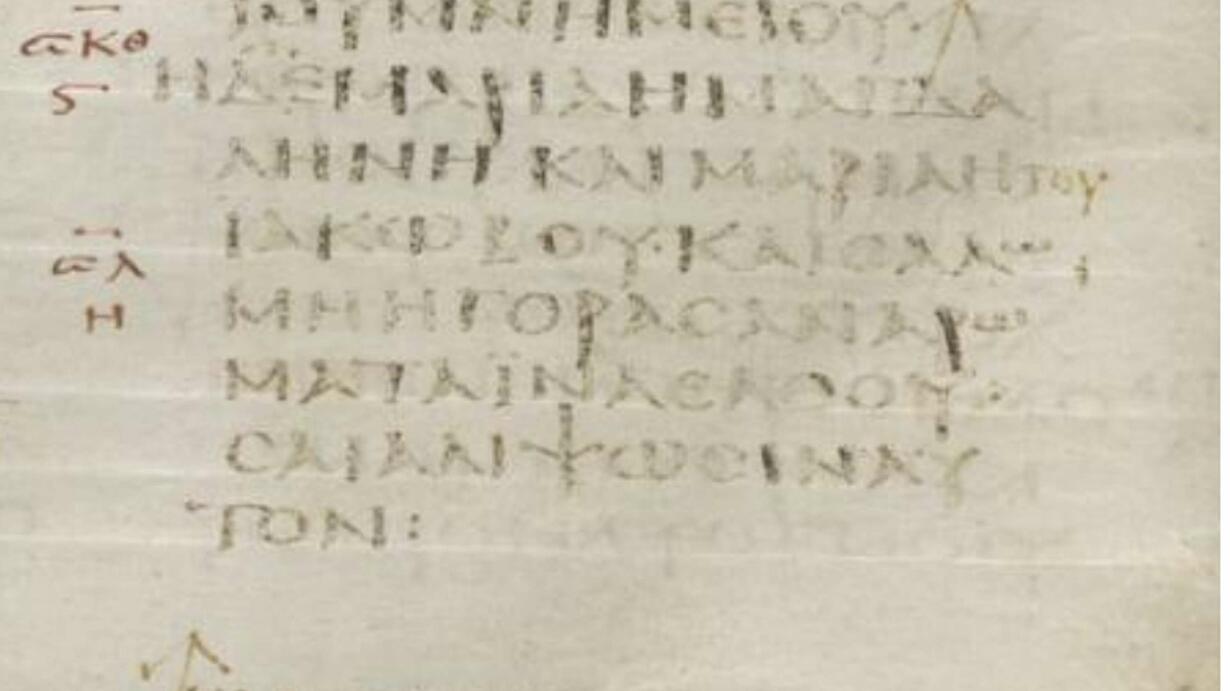 ϹΚΘ ΤΟΥΜΝΗΜΕΙΟΥ·
Ϛ ΗΔΕΜΑΡΙΑΗΜΑΓΔΑ
ΛΗΝΗΚΑΙΜΑΡΙΑΗΤΟΥ
ϹΛ ΙΑΚΩΒΟΥ·ΚΑΙϹΑΛΩ
Η ΜΗΗΓΟΡΑϹΑΝΑΡΩ
ΜΑΤΑΪΝΑΕΛΘΟΥ
ϹΑΙΑΛΙΨΩϹΙΝΑΥ
ΤΟΝ: